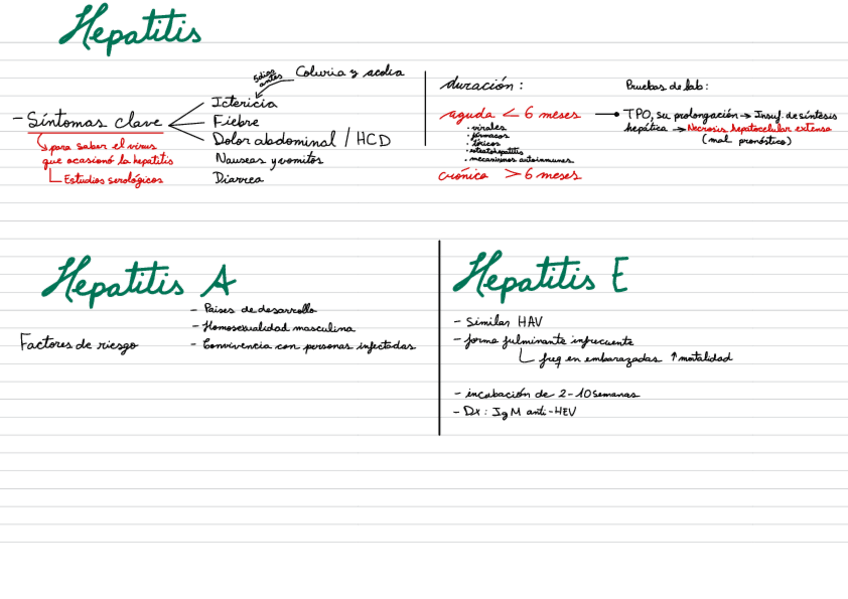 Hepatitis
5 días antes
Coluria y acolia
- Síntomas clave
Ictericia
Fiebre
Dolor abdominal / HCD
Nauseas y vomitos
Diarrea
para saber el virus
que ocasionó la hepatitis
Estudios serológicos
duración:
aguda < 6 meses
· virales
· fármacos
· tóxicos
· esteatohepatitis
· mecanismos autoinmunes
crónica > 6 meses
Pruebas de lab:
TPO, su prolongación → Insuf. de síntesis
hepática → Necrosis hepatocelular extensa
(mal pronóstico)
Hepatitis A
Factores de riesgo
- Países de desarrollo
- Homosexualidad masculina
- Convivencia con personas infectadas
Hepatitis E
- Similar HAV
- forma fulminante infrecuente
freq en embarazadas ↑ mortalidad
- incubación de 2-10 semanas
- Dx: IgM anti-HEV